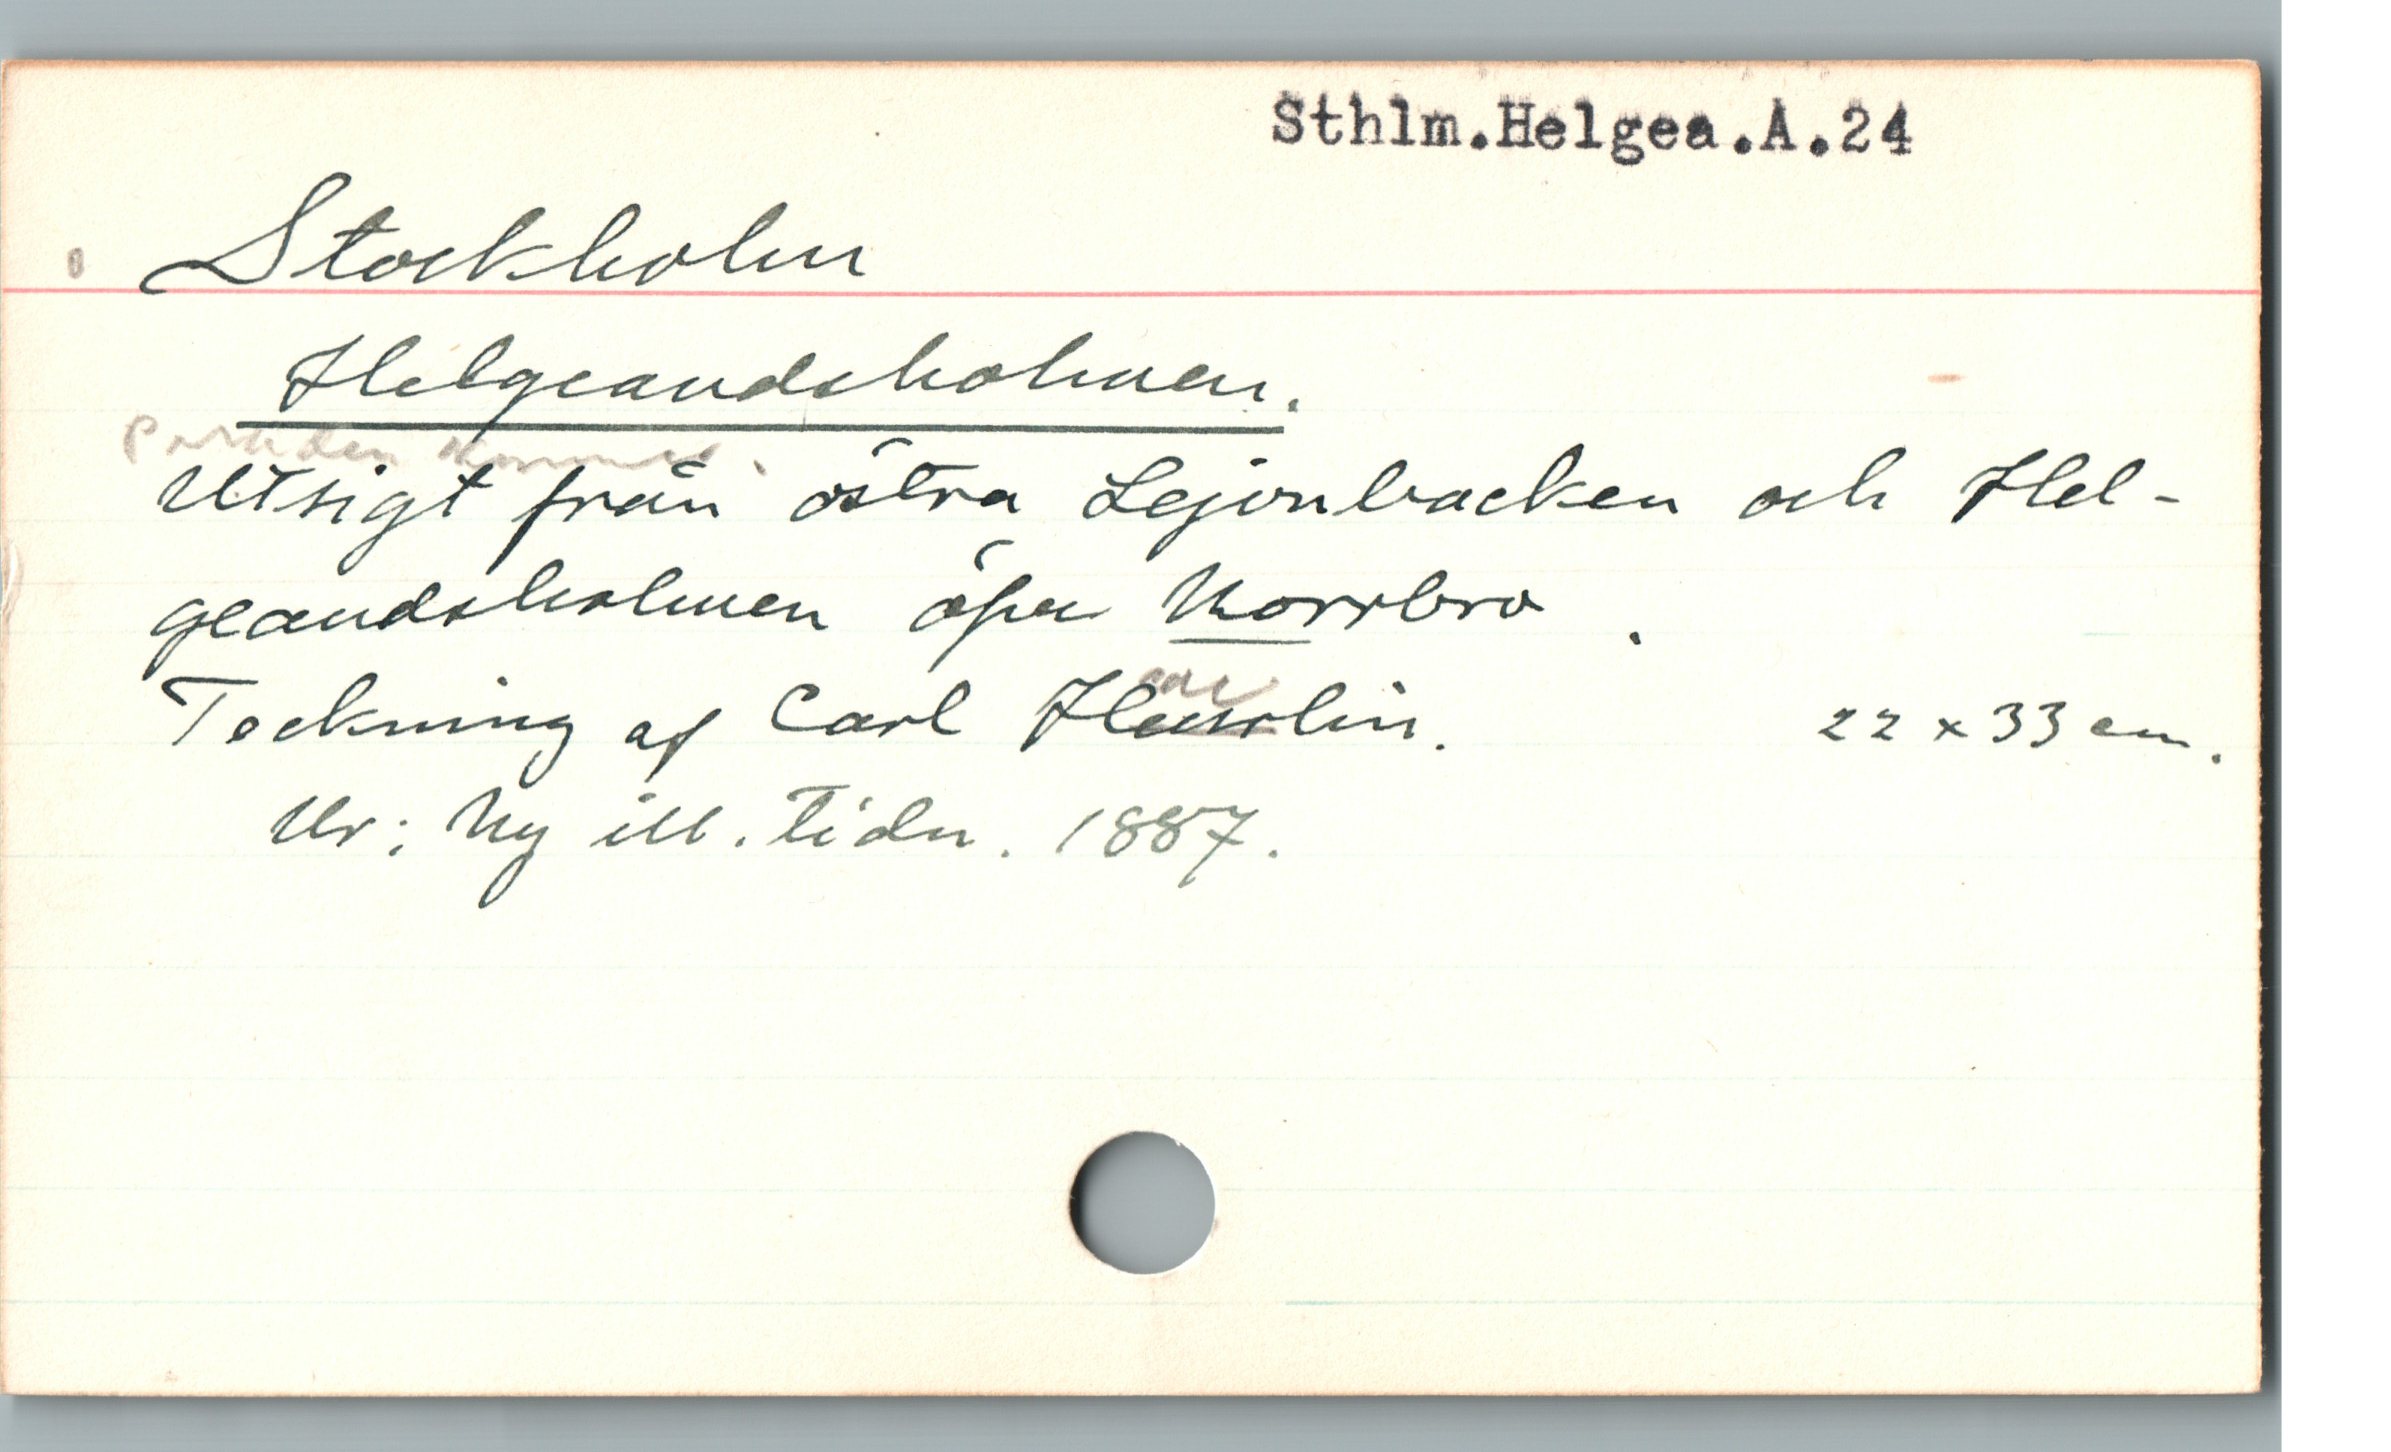 Sthlm.Helgea.A.24
Stockholm
Helgeandsholmen.
Utsigt från östra Lejonbacken och Hel-
geandsholmen öfver Norrbro.
Teckning af Carl
22 x 33 cm.
Ur: Ny ill. tidn. 1887.